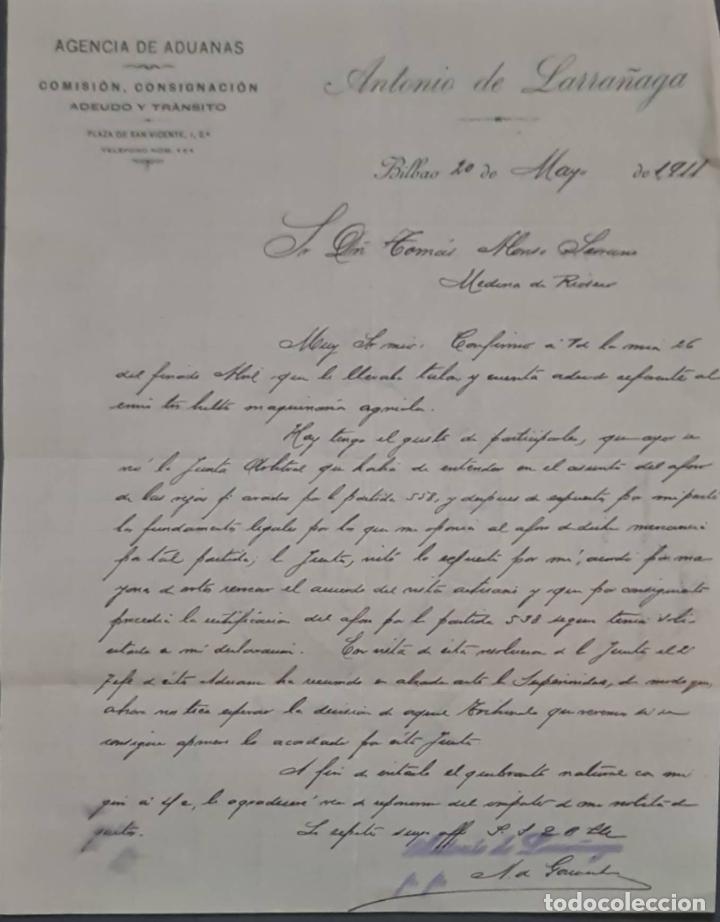 AGENCIA DE ADUANAS
COMISIÓN, CONSIGNACIÓN
ADEUDO Y TRÁNSITO
PLAZA DE SAN VICENTE, 1, 2º
TELÉFONO NÚM. 444
Antonio de Larrañaga
Bilbao 20 de Mayo de 1911
Sr Dn Tomás Alonso
Medina de Rioseco
Muy Sr mio: Confirmo á V de la mia 26
del finado Abril que le llevaba tala y cuenta adeudo referente al
envio tres bultos maquinaria agricola.
Hoy tengo el gusto de participarle, que ayer se
la Junta Arbitral que habia de entender en el asunto del aforo
de las rejas pª arados por la partida 558, y despues de expuesta por mi parte
los fundamentos legales por los que me oponia al aforo de dicha mercancia
por tal partida; la Junta, visto lo expuesto por mi, acordó por ma
yoria de votos revocar el acuerdo del vista y que por consiguiente
procedia la rectificacion del aforo por la partida 538 segun tenia soli
citado á mi declaracion. Con vista de esta resolucion de la Junta el 2º
Jefe de esta Aduana ha recurrido en alzada ante la Superioridad, de modo que,
ahora nos toca esperar la decision de aquel Tribunal que veremos si se
consigue apruebe lo acordado por esta Junta.
A fin de evitarle el quebranto natural con mi
giro á s/c, le agradeceré vea de reponerme del importe de mi notita de
gastos.
Le repito suyo aff S. S. Q B Lm
Antonio de Larrañaga
p. p.
todocoleccion